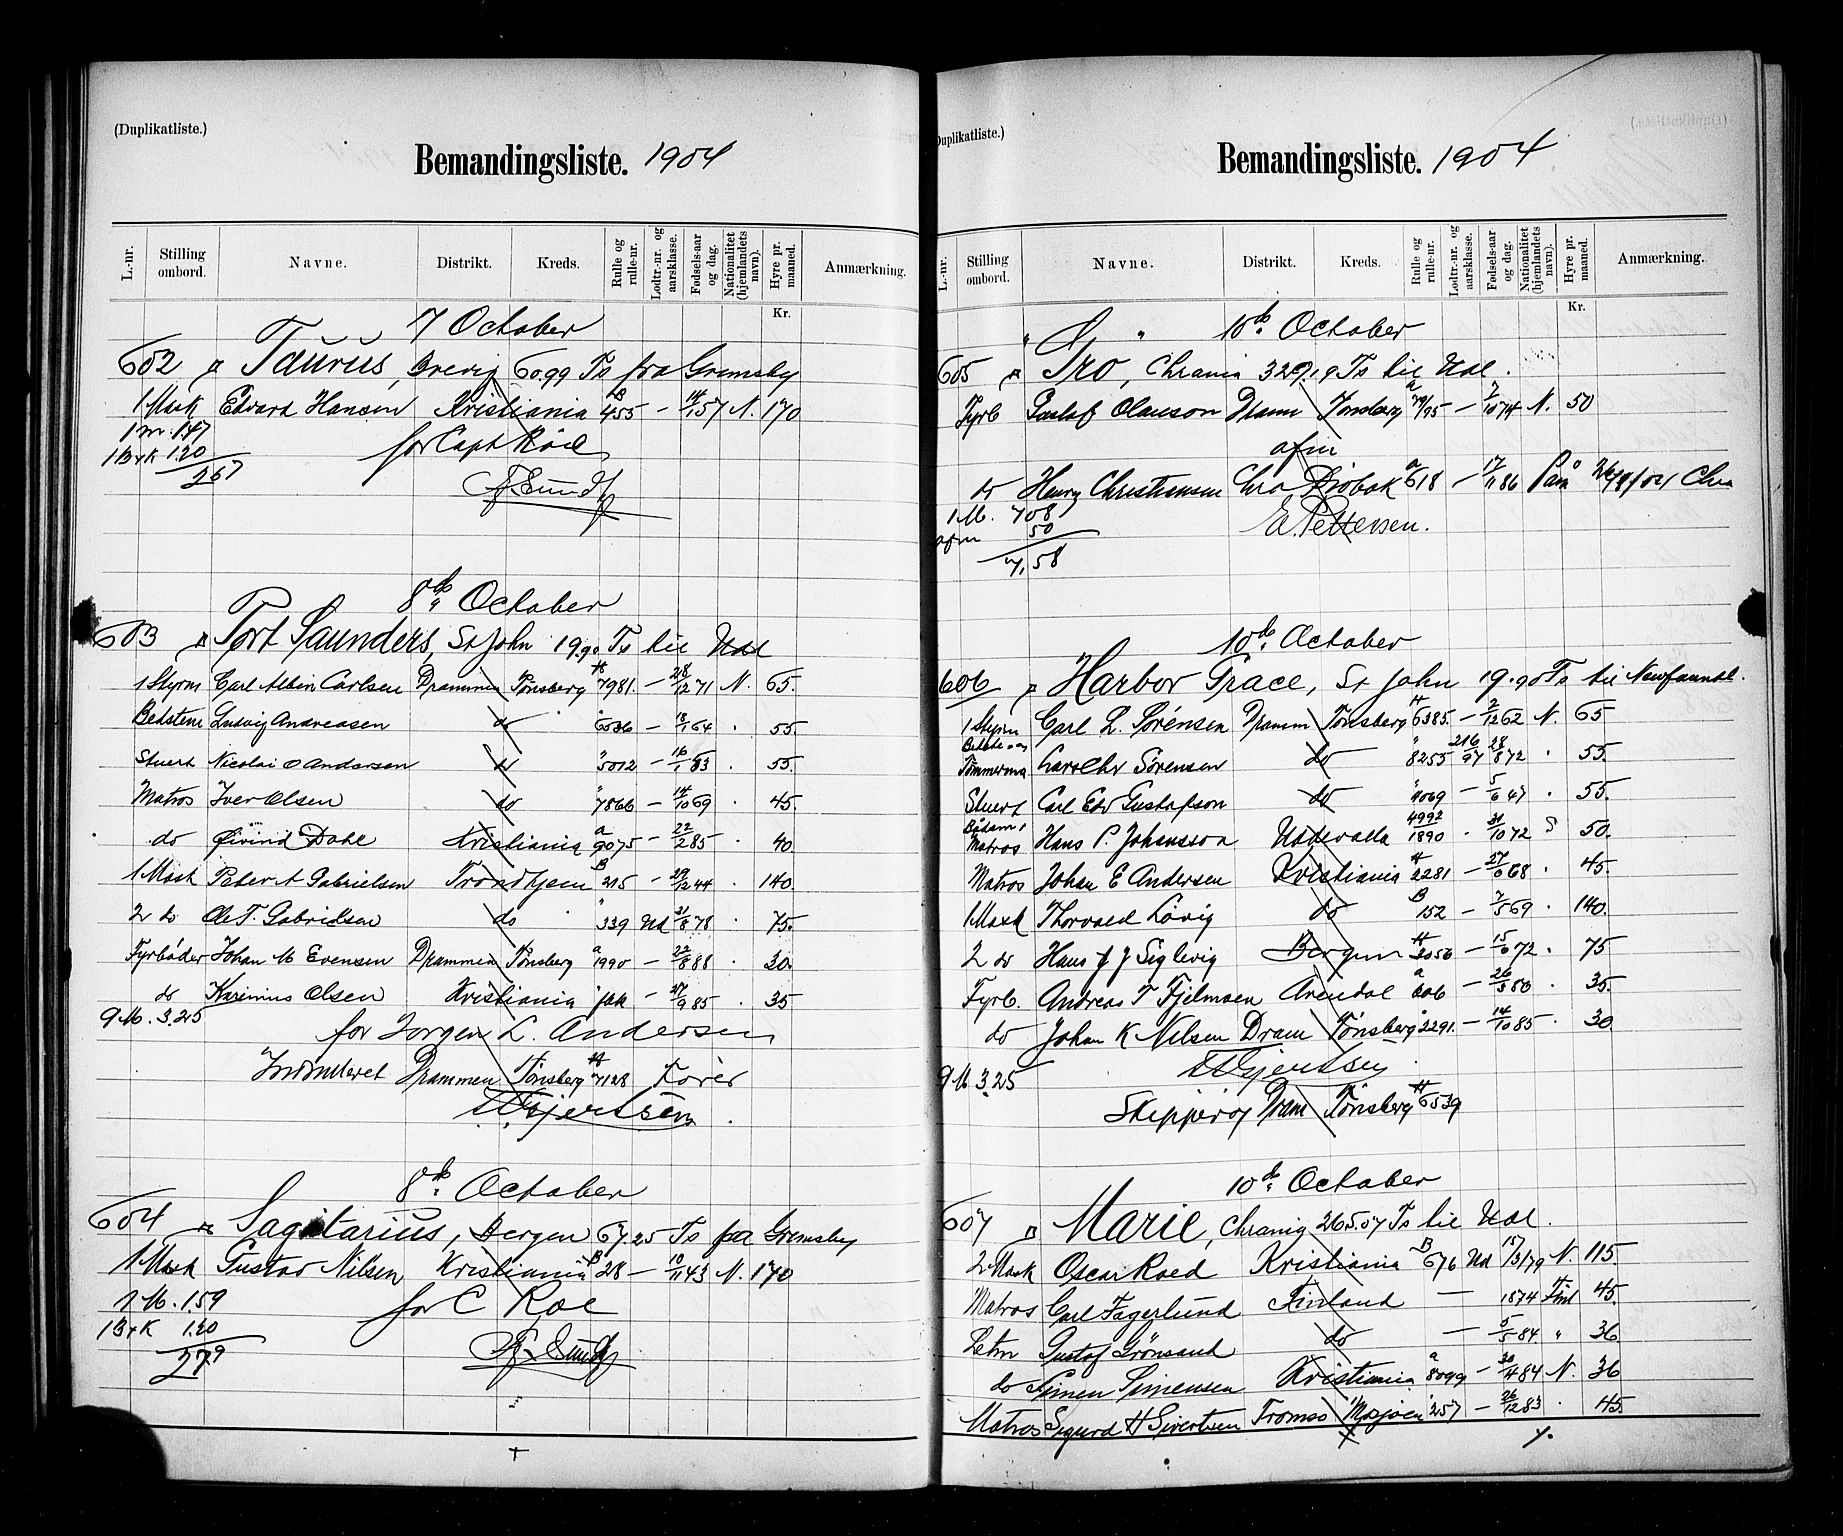 (Duplikatliste.)
Bemandingsliste. 1904
L.-nr. Stilling ombord. Navne. Distrikt. Kreds. Rulle og rulle-nr. Lodtr.-nr. og aarsklasse. Fødsels-aar og dag. Nationalitet (hjemlandets navn). Hyre pr. maaned. Anmærkning.
Kr.
7 October
602 Taurus, Brevig 60.99 Ts fra Grimsby
1 Mask Edvard Hansen Kristiania B 455 — 14/1 57 N. 170
1 m. 147
1 B+K 120
267
for Capt Röed
8de October
603 Port Saunders, St John 19.90 Ts til Udl
1 Styrm Carl Albin Carlsen Drammen Tönsberg H 7981. — 28/12 71 N. 65.
Bedstem Ludvig Andreasen do 6536 — 18/1 64 . 55.
Stuert Nicolai O Andersen do " 5012 — 16/1 83 55.
Matros Iver Olsen do " 7866 — 14/10 69 . 45.
do Øivind Dahl Kristiania a 9075 — 22/2 85 . 40
1 Mask Peter A Gabrielsen Trondhjem B 215 — 29/12 44 . 140.
2 do Ole T. Gabrielsen do " 339 Ud 31/8 78 . 75.
Fyrbøder Johan M Evensen Drammen Tønsberg a 1990 — 22/8 88 . 30.
do Karinius Olsen Kristiania — 27/9 85 . 35
9 M. 3.25
for Jorgen L. Andersen
Indrulleret Drammen Tönsberg H 7128 Fører
8de October
604 Sagitarius, Bergen 67.25 Ts fra Grimsby
1 Mask Gustav Nilsen Kristiania B 28 — 10/11 43 N. 170
1 M. 159
1 B+K 1.20
279
for C Röe
(Duplikatliste.)
Bemandingsliste. 1904
L.-nr. Stilling ombord. Navne. Distrikt. Kreds. Rulle og rulle-nr. Lodtr.-nr. og aarsklasse. Fødsels-aar og dag. Nationalitet (hjemlandets navn). Hyre pr. maaned. Anmærkning.
Kr.
10de October
605 Pro, Chrania 329.19 Ts til Udl.
Fyrb Gustaf Olausson Dram Tønsberg a 79/95 — 7/10 74 N. 50
afm
do Henry Christiansen Chra Drøbak a 618 — 17/11 86
1 M. 708
afm 50
7,58
E. Pettersen.
10de October
606 Harbor Grace, St John 19.90 Ts til Newfaundl.
1 Styrm Carl L. Sörensen Dramm Tønsberg H 6385. — 2/12 62 N. 65
Tømmerma Lars Chr Sörensen do " 8255 216/97 28/8 72 . 55.
Stuert Carl Edv Gustafson do " 4069 — 5/6 47 . 55.
Matros Hans P. Johansson Uddevalla 4992/1890 . 31/10 72 S 50.
Matros Johan E Andersen Kristiania H 2281 — 68 . 45.
1 Mask Thorvald Lövig do B 152 — 7/5 69 . 140.
2 do Hans J J Siglevig Bergen H 2056 — 72 . 75
Fyrb. Andreas T Fjelmoen Arendal a 606 — 26/3 80 . 35.
do Johan K Nilsen Dram Tönsberg 2291. — 14/10 85 . 30
9 M 3.25
Skipper Dram Tönsberg H 6539
10de October
607 Marie, Chrania 265.07 Ts til Udl.
2 Mask Oscar Roed Kristiania B 676 Ud 15/3 79 N. 115.
Matros Carl Fagerlund Finland — 1874 Finl 45.
Letm Gustaf Grönsand do — 5/5 84 " 36
do Simen Simensen Kristiania a 8099 — 30/4 84 N. 36
Matros Sigurd H Sivertsen Tromsø Mosjøen 257 — 26/12 83 . 45